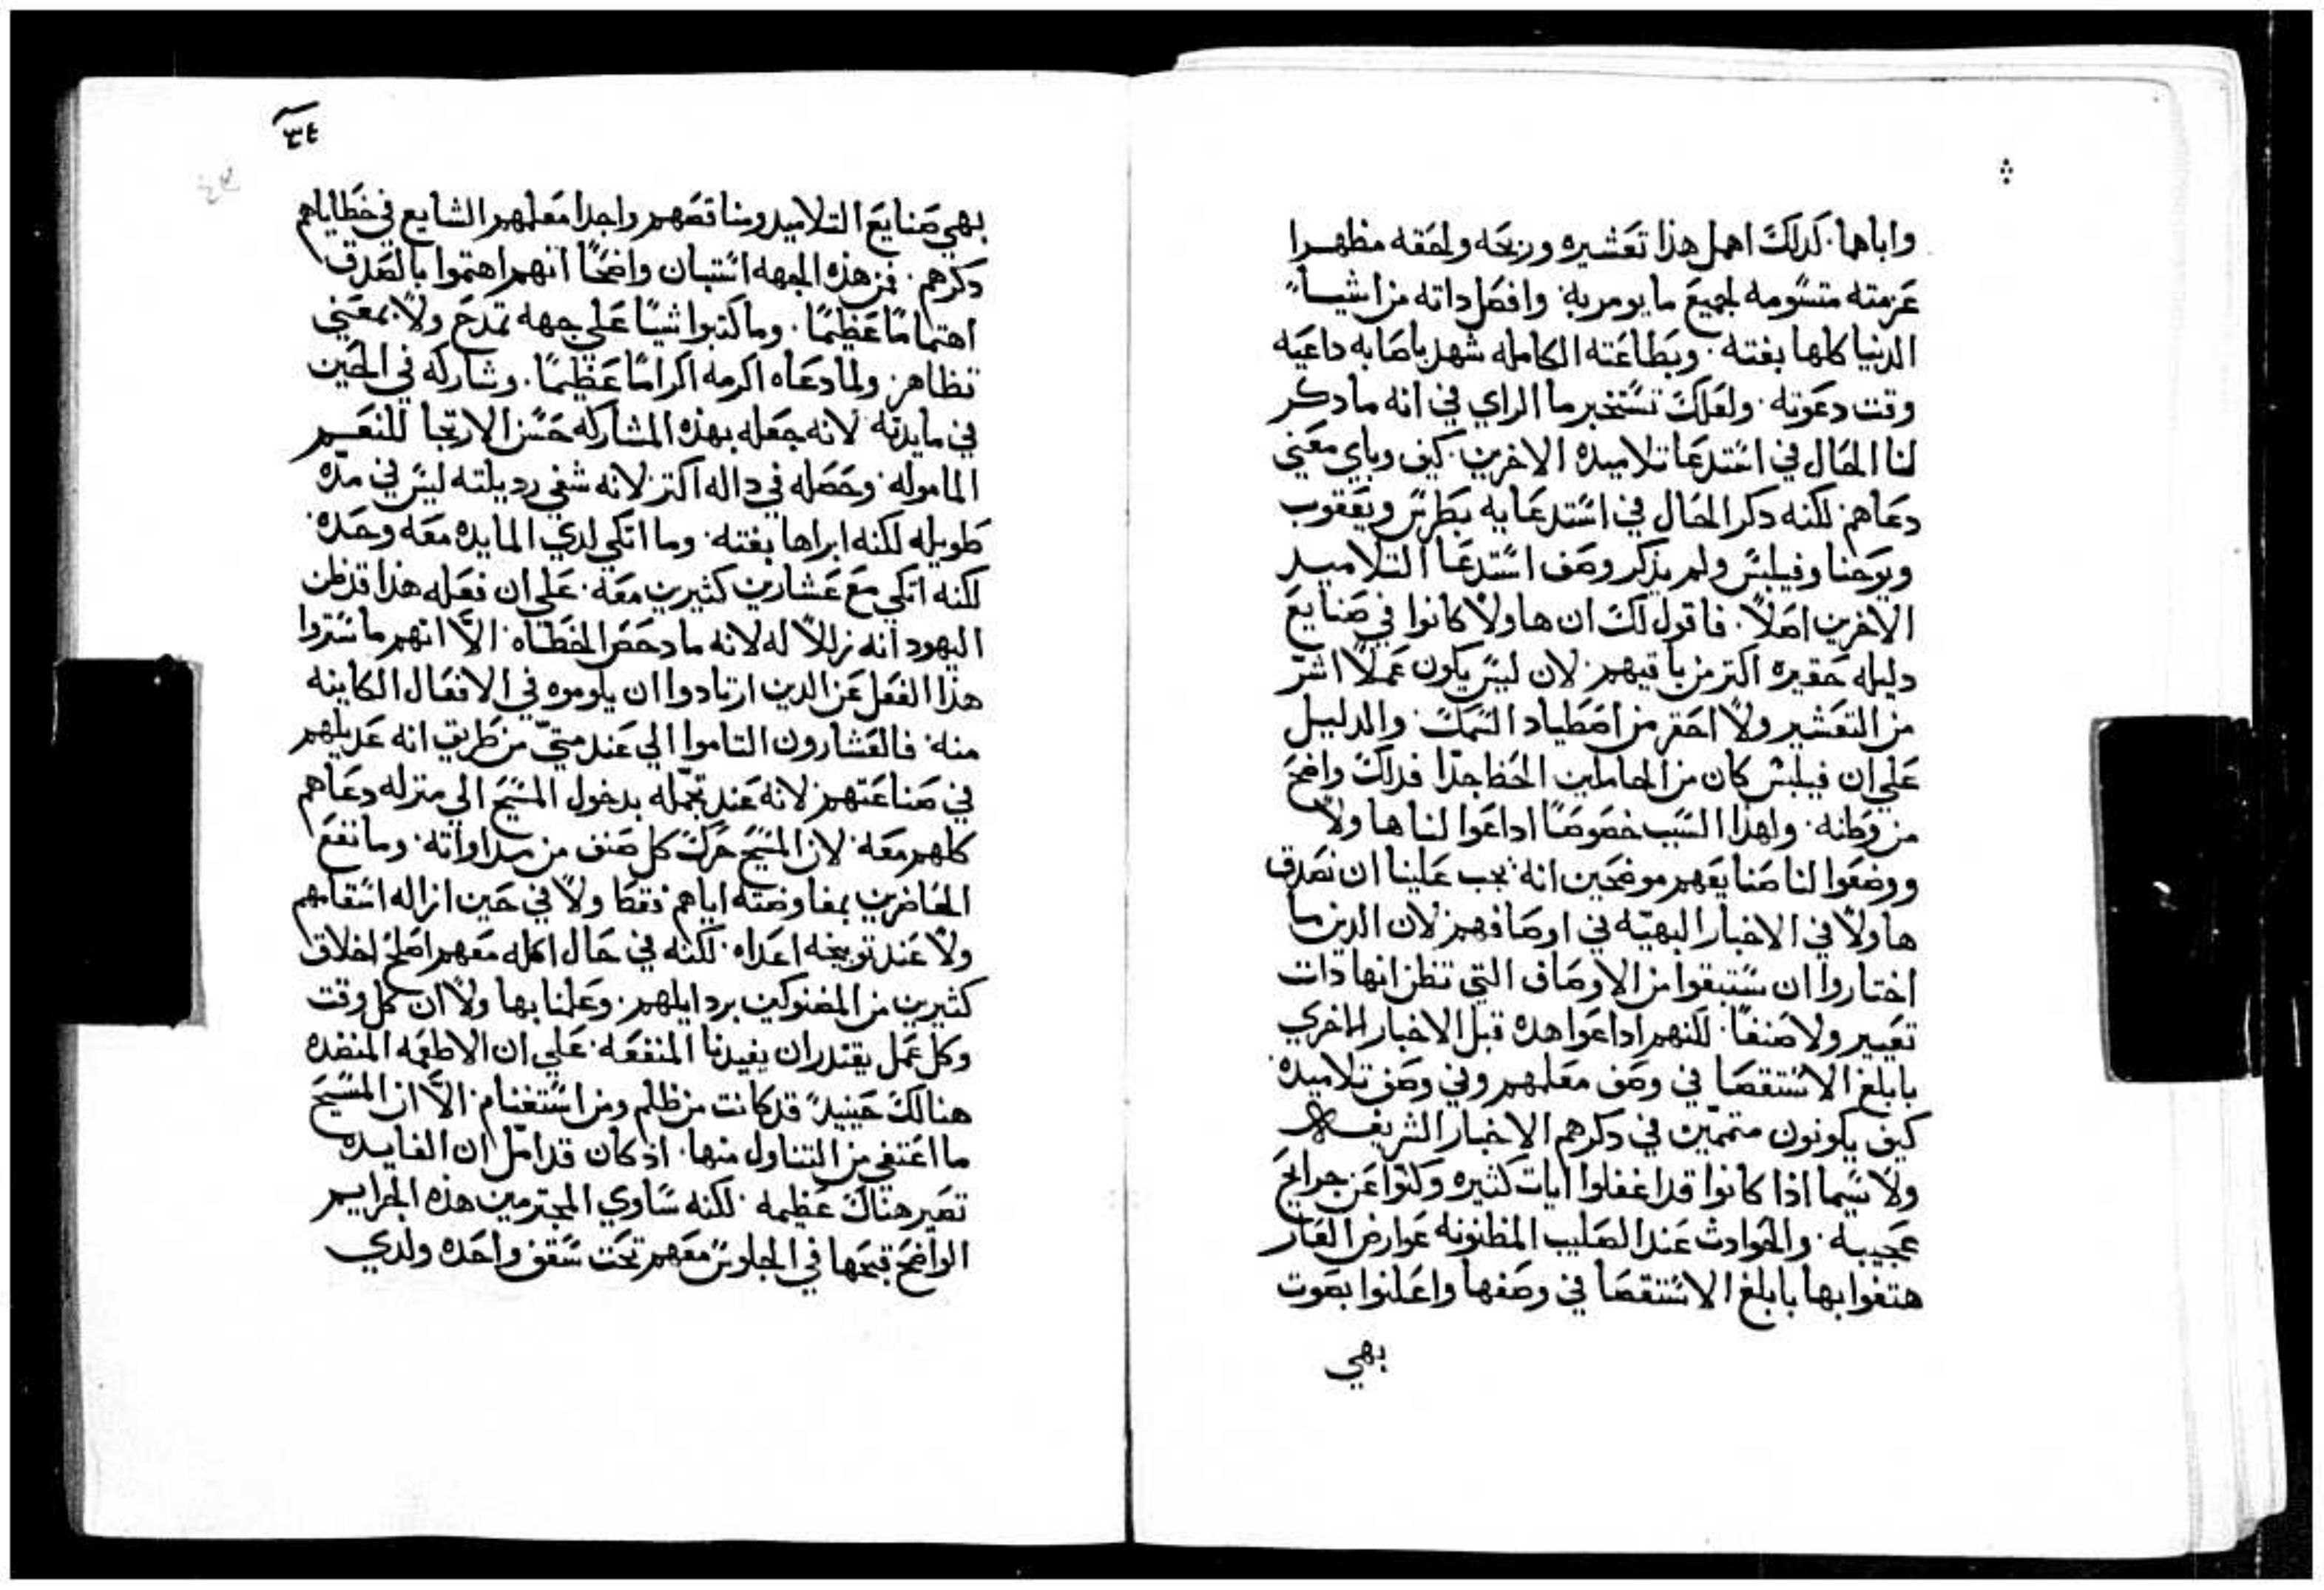 واباها. كدلك اهمل هذا تعشيره وربحه ولحقه مظهرا
عزمته متسومه لجميع ما يومر به. وافصل داته من اشياء
الدنيا كلها بغته. وبطاعته الكامله شهد باصابه داعيه
وقت دعوته. ولعلك تستخبر ما الراي في انه ما دكر
لنا الحال في استدعا تلاميده الاخرين. كيف وباي معني
دعاهم. لكنه دكر الحال في استدعايه بطرس ويعقوب
ويوحنا وفيلبس ولم يذكر وصف استدعا التلاميد
الاخرين اصلاً. فاقول لك ان هاولا كانوا في صنايع
دليله حقيره اكتر من باقيهم. لان ليس يكون عملاً اشر
من التعشير ولا احقر من اصطياد السمك. والدليل
علي ان فيلبس كان من الخاملين الحظ جدا فداك واضح
من وطنه. ولهذا السبب خصوصًا اداعوا لنا هاولا
ووضعوا لنا صنايعهم موضحين انه يجب علينا ان نصدق
هاولا في الاخبار البهيه في اوصافهم. لان الدين ما
اختاروا ان يستبقوا من الاوصاف التي تظن انها دات
تعيير ولا صنفًا. لكنهم اداعوا هده قبل الاخبار الاخري
بابلغ الاستقصا في وصف معلمهم وفي وصف تلاميده
كيف يكونون متهمين في دكرهم الاخبار الشريفه
ولا سيما اذا كانوا قد اغفلوا ايات كثيره وكتوا عن جرايح
عجيبه. والحوادث عند الصليب المظنونه عوارض العار
هتفوا بها بابلغ الاستقصا في وصفها واعلنوا بصوت
بهي
٣٤
بهي صنايع التلاميد ومناقصهم واجدا معلمهم الشايع في خطاياهم
دكرهم. فمن هذه الجهه استبان واضحًا انهم اهتموا بالصدق
اهتمامًا عظيمًا. وما كتبوا شيًا علي جهه تمدح ولا بمعني
تظاهر. ولما دعاه اكرمه اكرامًا عظيمًا. وشاركه في الحين
في مايدته. لانه جعله بهذه المشاركه حسن الارتجا للنعم
الماموله. وحصله في داله اكتر. لانه شفي رديلته ليس في مده
طويله لكنه ابراها بغته. وما اتكي لدي المايده معه وحده.
لكنه اتكي مع عشارين كثيرين معه. علي ان فعله هذا قد ظن
اليهود انه زللاً له لانه ما دحض الخطاه. الا انهم ما ستروا
هذا الفعل عن الدين ارتادوا ان يلوموه في الافعال الكاينه
منه. فالعشارون التاموا الي عند متي من طريق انه عديلهم
في صناعتهم. لانه عند تجمله بدخول المسيح الي منزله دعاهم
كلهم معه. لان المسيح حرك كل صنف من مداواته. وما نفع
الحاضرين بمفاوضته اياهم فقط ولا في حين ازاله اسقامهم
ولا عند توبيخه اعداه. لكنه في حال اكله معهم اصلح اخلاق
كثيرين من المضنوكين بردايلهم. وعلمنا بها ولا ان كل وقت
وكل عمل يقتدر ان يفيدنا المنفعه. علي ان الاطعمه المنضده
هنالك حينيدً قد كانت من ظلم ومن استغنام. الا ان المسيح
ما اعتفي من التناول منها. اذ كان قد امل ان الفايده
تصير هناك عظيمه. لكنه ساوي المجترمين هذه الجرايم
الواضح قبحها في الجلوس معهم تحت سقف واحده ولدي